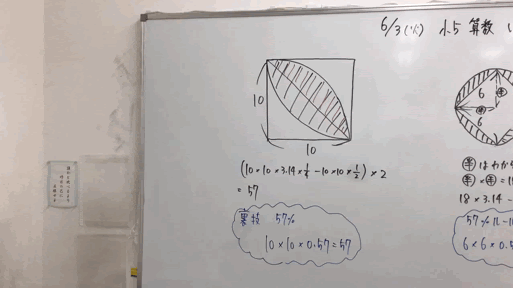 6/3(火) 小5 算数
10
10
(10×10×3.14×1/4-10×10×1/2)×2
=57
裏技 57%
10×10×0.57=57
6
半
半
6
半はわから
半×半=1
18×3.14-
57%
6×6×0.5